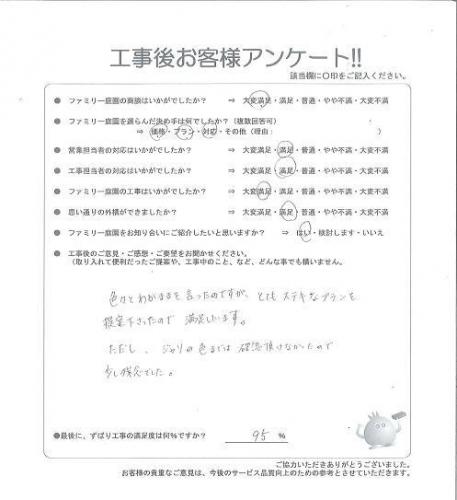 工事後お客様アンケート!!
該当欄に〇印をご記入ください。
● ファミリー庭園の商談はいかがでしたか? ⇒ 大変満足・満足・普通・やや不満・大変不満
● ファミリー庭園を選らんだ決め手は何でしたか?(複数回答可)
⇒ 価格・プラン・対応・その他(理由: )
● 営業担当者の対応はいかがでしたか? ⇒ 大変満足・満足・普通・やや不満・大変不満
● 工事担当者の対応はいかがでしたか? ⇒ 大変満足・満足・普通・やや不満・大変不満
● ファミリー庭園の工事はいかがでしたか? ⇒ 大変満足・満足・普通・やや不満・大変不満
● 思い通りの外構ができましたか? ⇒ 大変満足・満足・普通・やや不満・大変不満
● ファミリー庭園をお知り合いにご紹介したいと思いますか? ⇒ はい・検討します・いいえ
● 工事後のご意見・ご感想・ご要望をお聞かせください。
(取り入れて便利だったご提案や、工事中のこと、など、どんな事でも構いません。
色々とわがままを言ったのですが、とてもステキなプランを
提案下さったので 満足しています。
ただし、ジャリの色までは 確認頂けなかったので
少し残念でした。
●最後に、ずばり工事の満足度は何%ですか? 95 %
ご協力いただきありがとうございました。
お客様の貴重なご意見は、今後のサービス品質向上のための参考とさせていただきます。